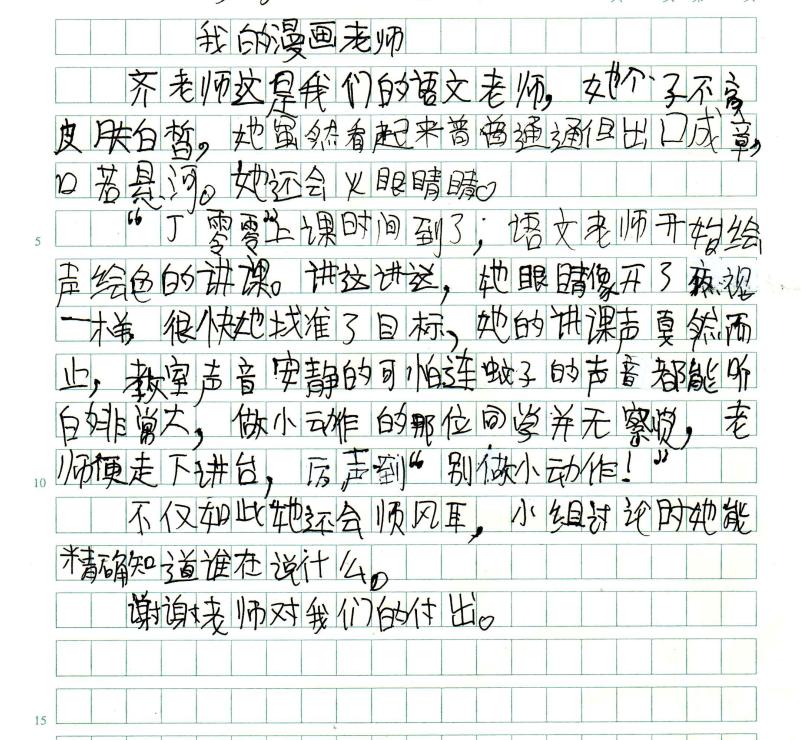 我的漫画老师
齐老师这是我们的语文老师，她个子不高
皮肤白皙，她虽然看起来普普通通但出口成章，
口若悬河。她还会火眼睛睛。
“丁零零”上课时间到了；语文老师开始绘
声绘色的讲课。讲这讲这，她眼睛像开了夜视
一样，很快她找准了目标，她的讲课声戛然而
止，教室声音安静的可怕连蚊子的声音都能听
的非常大，做小动作的那位同学并无察觉，老
师便走下讲台，厉声到“别做小动作！”
不仅如此她还会顺风耳，小组讨论时她能
精确知道谁在说什么。
谢谢老师对我们的付出。
5
10
15